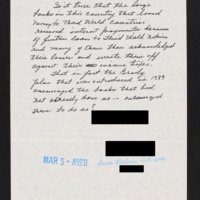 Is it true that the large
banks in this country that loaned
money to Third World Countries
received interest payments because
of further loans to Third World Nations
and many of them that acknowledged
their losses and wrote them off
against their income taxes.
That in fact the Brady
plan that was introduced in 1989
encouraged the banks that had
not already done so - encouraged
them to do so
MAR 5 - AND